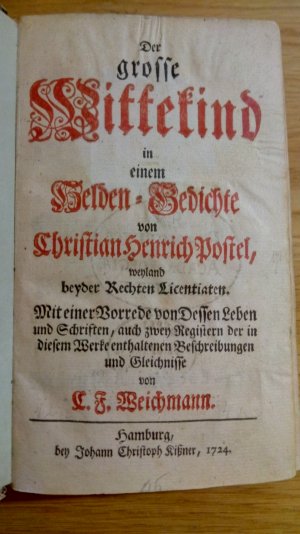 Der
grosse
Wittekind
in
einem
Helden-Gedichte
von
Christian Henrich Postel,
weyland
beyder Rechten Licentiaten.
Mit einer Vorrede von Dessen Leben
und Schriften, auch zwey Registern der in
diesem Werke enthaltenen Beschreibungen
und Gleichnisse
von
C. F. Weichmann.
Hamburg,
bey Johann Christoph Kißner, 1724.